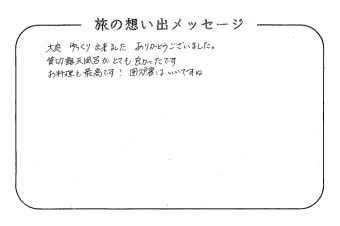 旅の想い出メッセージ
大変 ゆっくり 出来ました ありがとうございました。
貸切露天風呂が とても 良かったです
お料理も最高です! 囲炉裏はいいですね